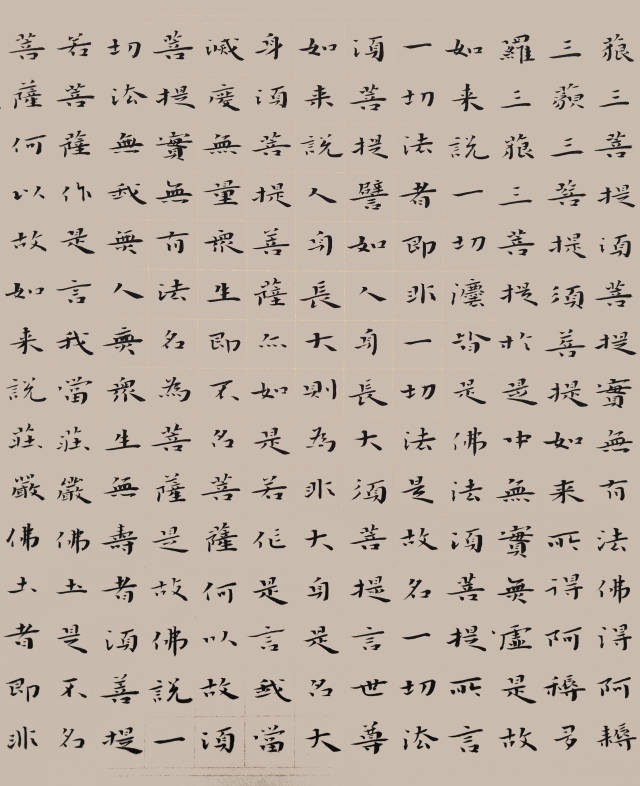 藐三菩提須菩提實無有法佛得阿耨
三藐三菩提須菩提如来所得阿耨多
羅三藐三菩提於是中無實無虛是故
如来說一切法皆是佛法須菩提所言
一切法者即非一切法是故名一切法
須菩提譬如人身長大須菩提言世尊
如来說人身長大則為非大身是名大
身須菩提菩薩亦如是若作是言我當
滅度無量衆生即不名菩薩何以故須
菩提實無有法名為菩薩是故佛說一
切法無我無人無衆生無壽者須菩提
若菩薩作是言我當莊嚴佛土是不名
菩薩何以故如来說莊嚴佛土者即非